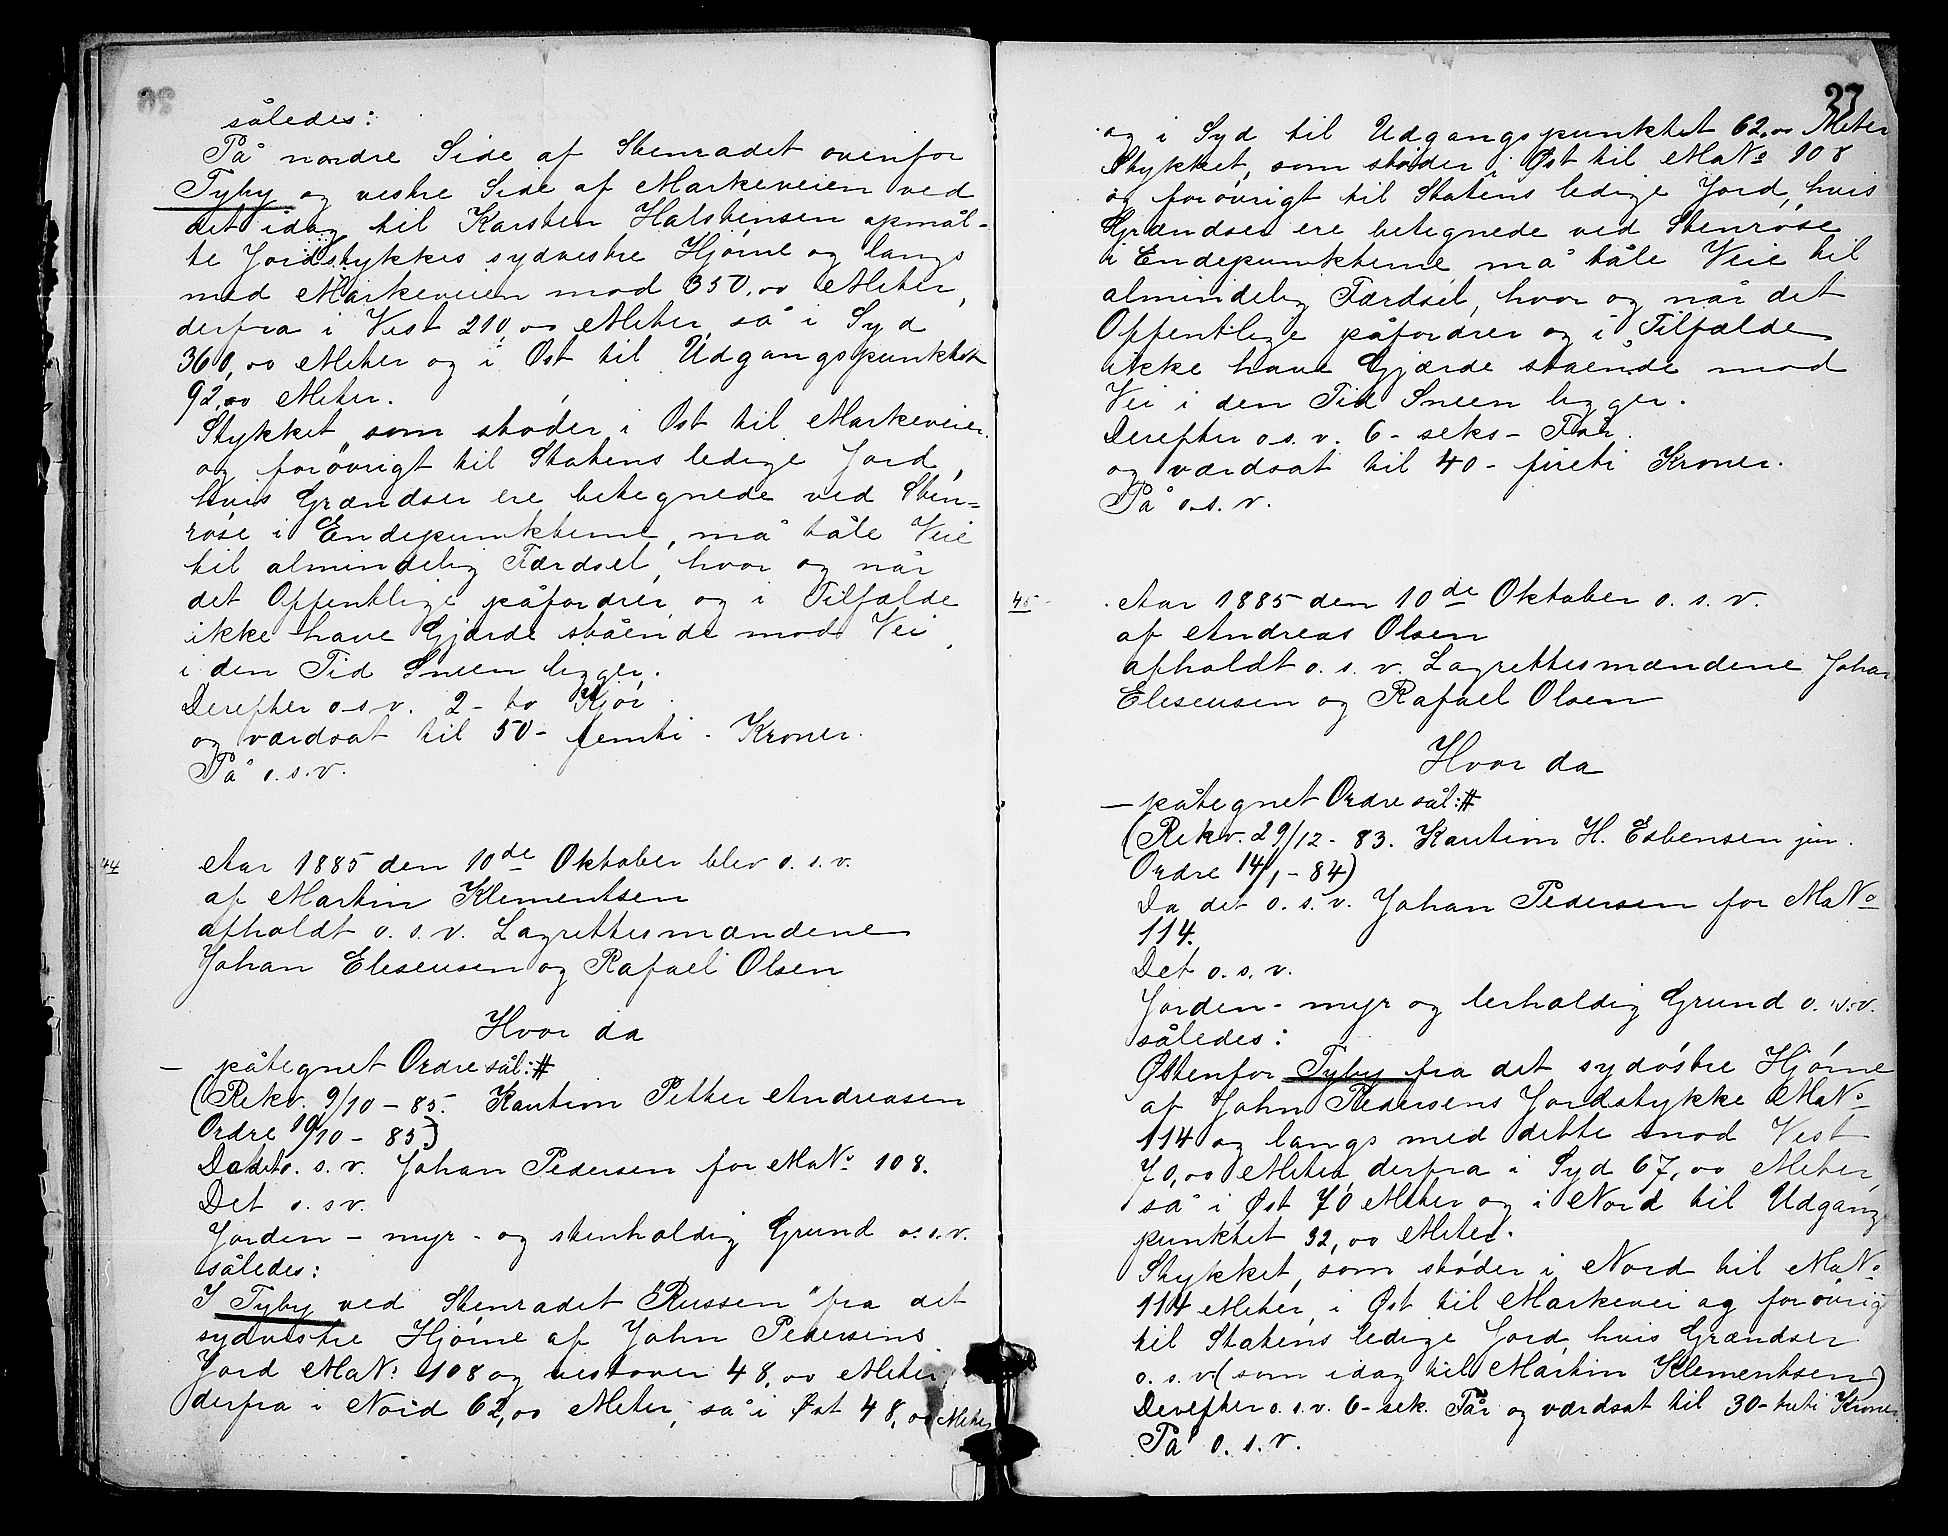 således:
På nordre Side af Stenradet ovenfor
Tyby og vestre Side af Markeveien ved
det idag til Karsten Halstensen opmål-
te Jordstykkes sydvestre Hjørne og langs
med Markeveien mod 350,00 Meter,
derfra i Vest 210,00 Meter, så i Syd
360,00 Meter og i Øst til Udgangspunktet
92,00 Meter.
Stykket, som støder i Øst til Markeveien
og forøvrigt til Statens ledige Jord,
hvis Grændser ere betegnede ved Sten-
røse i Endepunkterne, må tåle Veie
til almindelig Færdsel, hvor og når
det Offentlige påfordrer, og i Tilfælde
ikke have Gjærde stående mod Vei
i den Tid Sneen ligger.
Derefter o.s.v. 2 - to Kjør
og værdsat til 50 - femti - Kroner.
På o.s.v.
44
Aar 1885 den 10de Oktober blev o.s.v.
af Martin Klementsen
afholdt o.s.v. Lagrettesmændene
Johan Eliseusen og Rafael Olsen
Hvor da
— påtegnet Ordre sål:#
(Rekv. 9/10 - 85. Kaution Petter Andreasen
Ordre 10/10 - 85)
Da det o.s.v. Johan Pedersen for MaNo 108.
Det o.s.v.
Jorden - myr - og stenholdig Grund o.s.v.
således:
I Tyby ved Stenradet "Russen" fra det
sydvestre Hjørne af John Pedersens
Jord MaNo 108 og vestover 48,00 Meter,
derfra i Nord 62,00 Meter, så i Øst 48,00 Meter
37
og i Syd til Udgangspunktet 62,00 Meter
Stykket, som støder i Øst til MaNo 108
og forøvrigt til Statens ledige Jord, hvis
Grændser ere betegnede ved Stenrøse
i Endepunkterne må tåle Veie til
almindelig Færdsel, hvor og når det
Offentlige påfordrer og i Tilfælde
ikke have Gjærde stående mod
Vei i den Tid Sneen ligger.
Derefter o.s.v. 6 - seks - Får.
og værdsat til 40 - fireti Kroner.
På o.s.v.
45
Aar 1885 den 10de Oktober o.s.v.
af Andreas Olsen
afholdt o.s.v. Lagrettesmændene Johan
Eliseusen og Rafael Olsen
Hvor da
— påtegnet Ordre sål:#
(Rekv. 29/12 - 83. Kaution H. Esbensen jun.
Ordre 14/1 - 84)
Da det o.s.v. Johan Pedersen for MaNo
114.
Det o.s.v.
Jorden - myr og lerholdig Grund o.s.v.
således:
Østenfor Tyby fra det sydøstre Hjørne
af John Pedersens Jordstykke MaNo
114 og langs med dette mod Vest
70,00 Meter, derfra i Syd 67,00 Meter,
så i Øst 70 Meter og i Nord til Udgangs
punktet 32,00 Meter.
Stykket, som støder i Nord til MaNo
114 Meter, i Øst til Markevei og forøvrigt
til Statens ledige Jord, hvis Grændser
o.s.v. (som idag til Martin Klementsen)
Derefter o.s.v. 6 - sek. Får og værdsat til 30 - treti Kroner
På o.s.v.